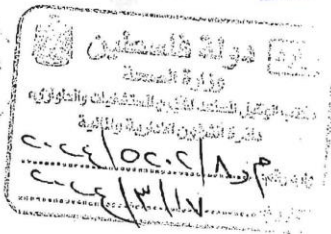 دولة فلسطين
وزارة الصحة
مكتب الوكيل المساعد لشؤون المستشفيات والطوارئ
دائرة الشؤون الادارية والمالية
وارد رقم ٨/٥٢٠٢/٢٠٢٤
١٧/٣/٢٠٢٤